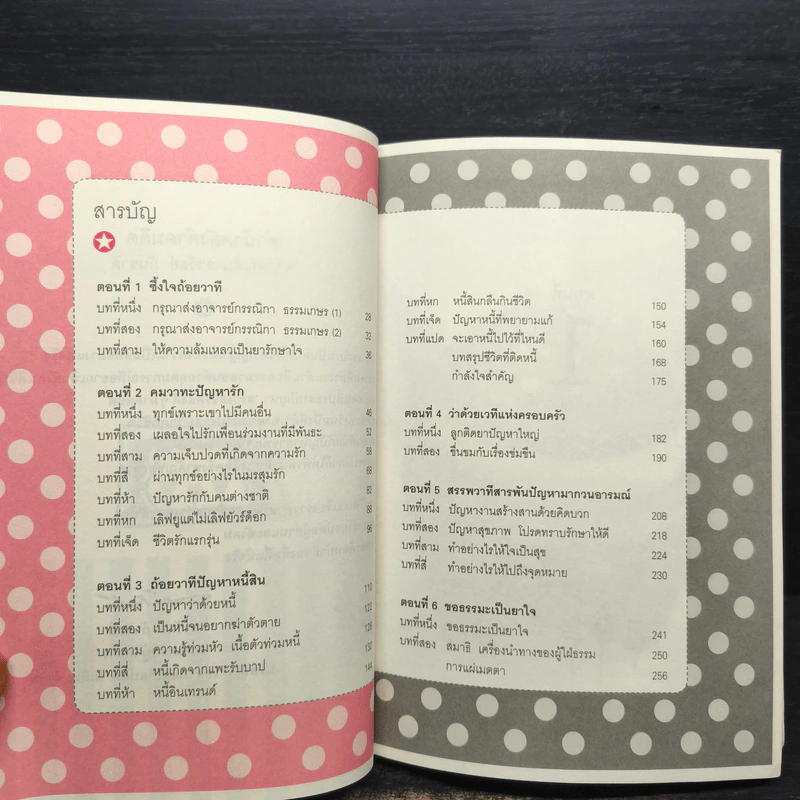 สารบัญ
ตอนที่ 1 ซึ้งใจถ้อยวาที
บทที่หนึ่ง กรุณาส่งอาจารย์กรรณิกา ธรรมเกษร (1) 28
บทที่สอง กรุณาส่งอาจารย์กรรณิกา ธรรมเกษร (2) 32
บทที่สาม ให้ความล้มเหลวเป็นยารักษาใจ 36
ตอนที่ 2 คมวาทะปัญหารัก
บทที่หนึ่ง ทุกข์เพราะเขาไปมีคนอื่น 46
บทที่สอง เผลอใจไปรักเพื่อนร่วมงานที่มีพันธะ 52
บทที่สาม ความเจ็บปวดที่เกิดจากความรัก 58
บทที่สี่ ผ่านทุกข์อย่างไรในมรสุมรัก 68
บทที่ห้า ปัญหารักกับคนต่างชาติ 82
บทที่หก เลิฟยูแต่ไม่เลิฟยัวร์ด็อก 88
บทที่เจ็ด ชีวิตรักแรกรุ่น 96
ตอนที่ 3 ถ้อยวาทีปัญหาหนี้สิน 110
บทที่หนึ่ง ปัญหาว่าด้วยหนี้ 122
บทที่สอง เป็นหนี้จนอยากฆ่าตัวตาย 128
บทที่สาม ความรู้ท่วมหัว เนื้อตัวท่วมหนี้ 132
บทที่สี่ หนี้เกิดจากแพะรับบาป 144
บทที่ห้า หนี้อินเทรนด์
บทที่หก หนี้สินกลืนกินชีวิต 150
บทที่เจ็ด ปัญหาหนี้ที่พยายามแก้ 154
บทที่แปด จะเอาหนี้ไปไว้ที่ไหนดี 160
บทสรุปชีวิตที่ติดหนี้ 168
กำลังใจสำคัญ 175
ตอนที่ 4 ว่าด้วยเวทีแห่งครอบครัว
บทที่หนึ่ง ลูกติดยาปัญหาใหญ่ 182
บทที่สอง ขื่นขมกับเรื่องข่มขืน 190
ตอนที่ 5 สรรพวาทีสารพันปัญหามากวนอารมณ์
บทที่หนึ่ง ปัญหางานสร้างสานด้วยคิดบวก 208
บทที่สอง ปัญหาสุขภาพ โปรดทราบรักษาให้ดี 218
บทที่สาม ทำอย่างไรให้ใจเป็นสุข 224
บทที่สี่ ทำอย่างไรให้ไปถึงจุดหมาย 230
ตอนที่ 6 ขอธรรมะเป็นยาใจ
บทที่หนึ่ง ขอธรรมะเป็นยาใจ 241
บทที่สอง สมาธิ เครื่องนำทางของผู้ใฝ่ธรรม 250
การแผ่เมตตา 256